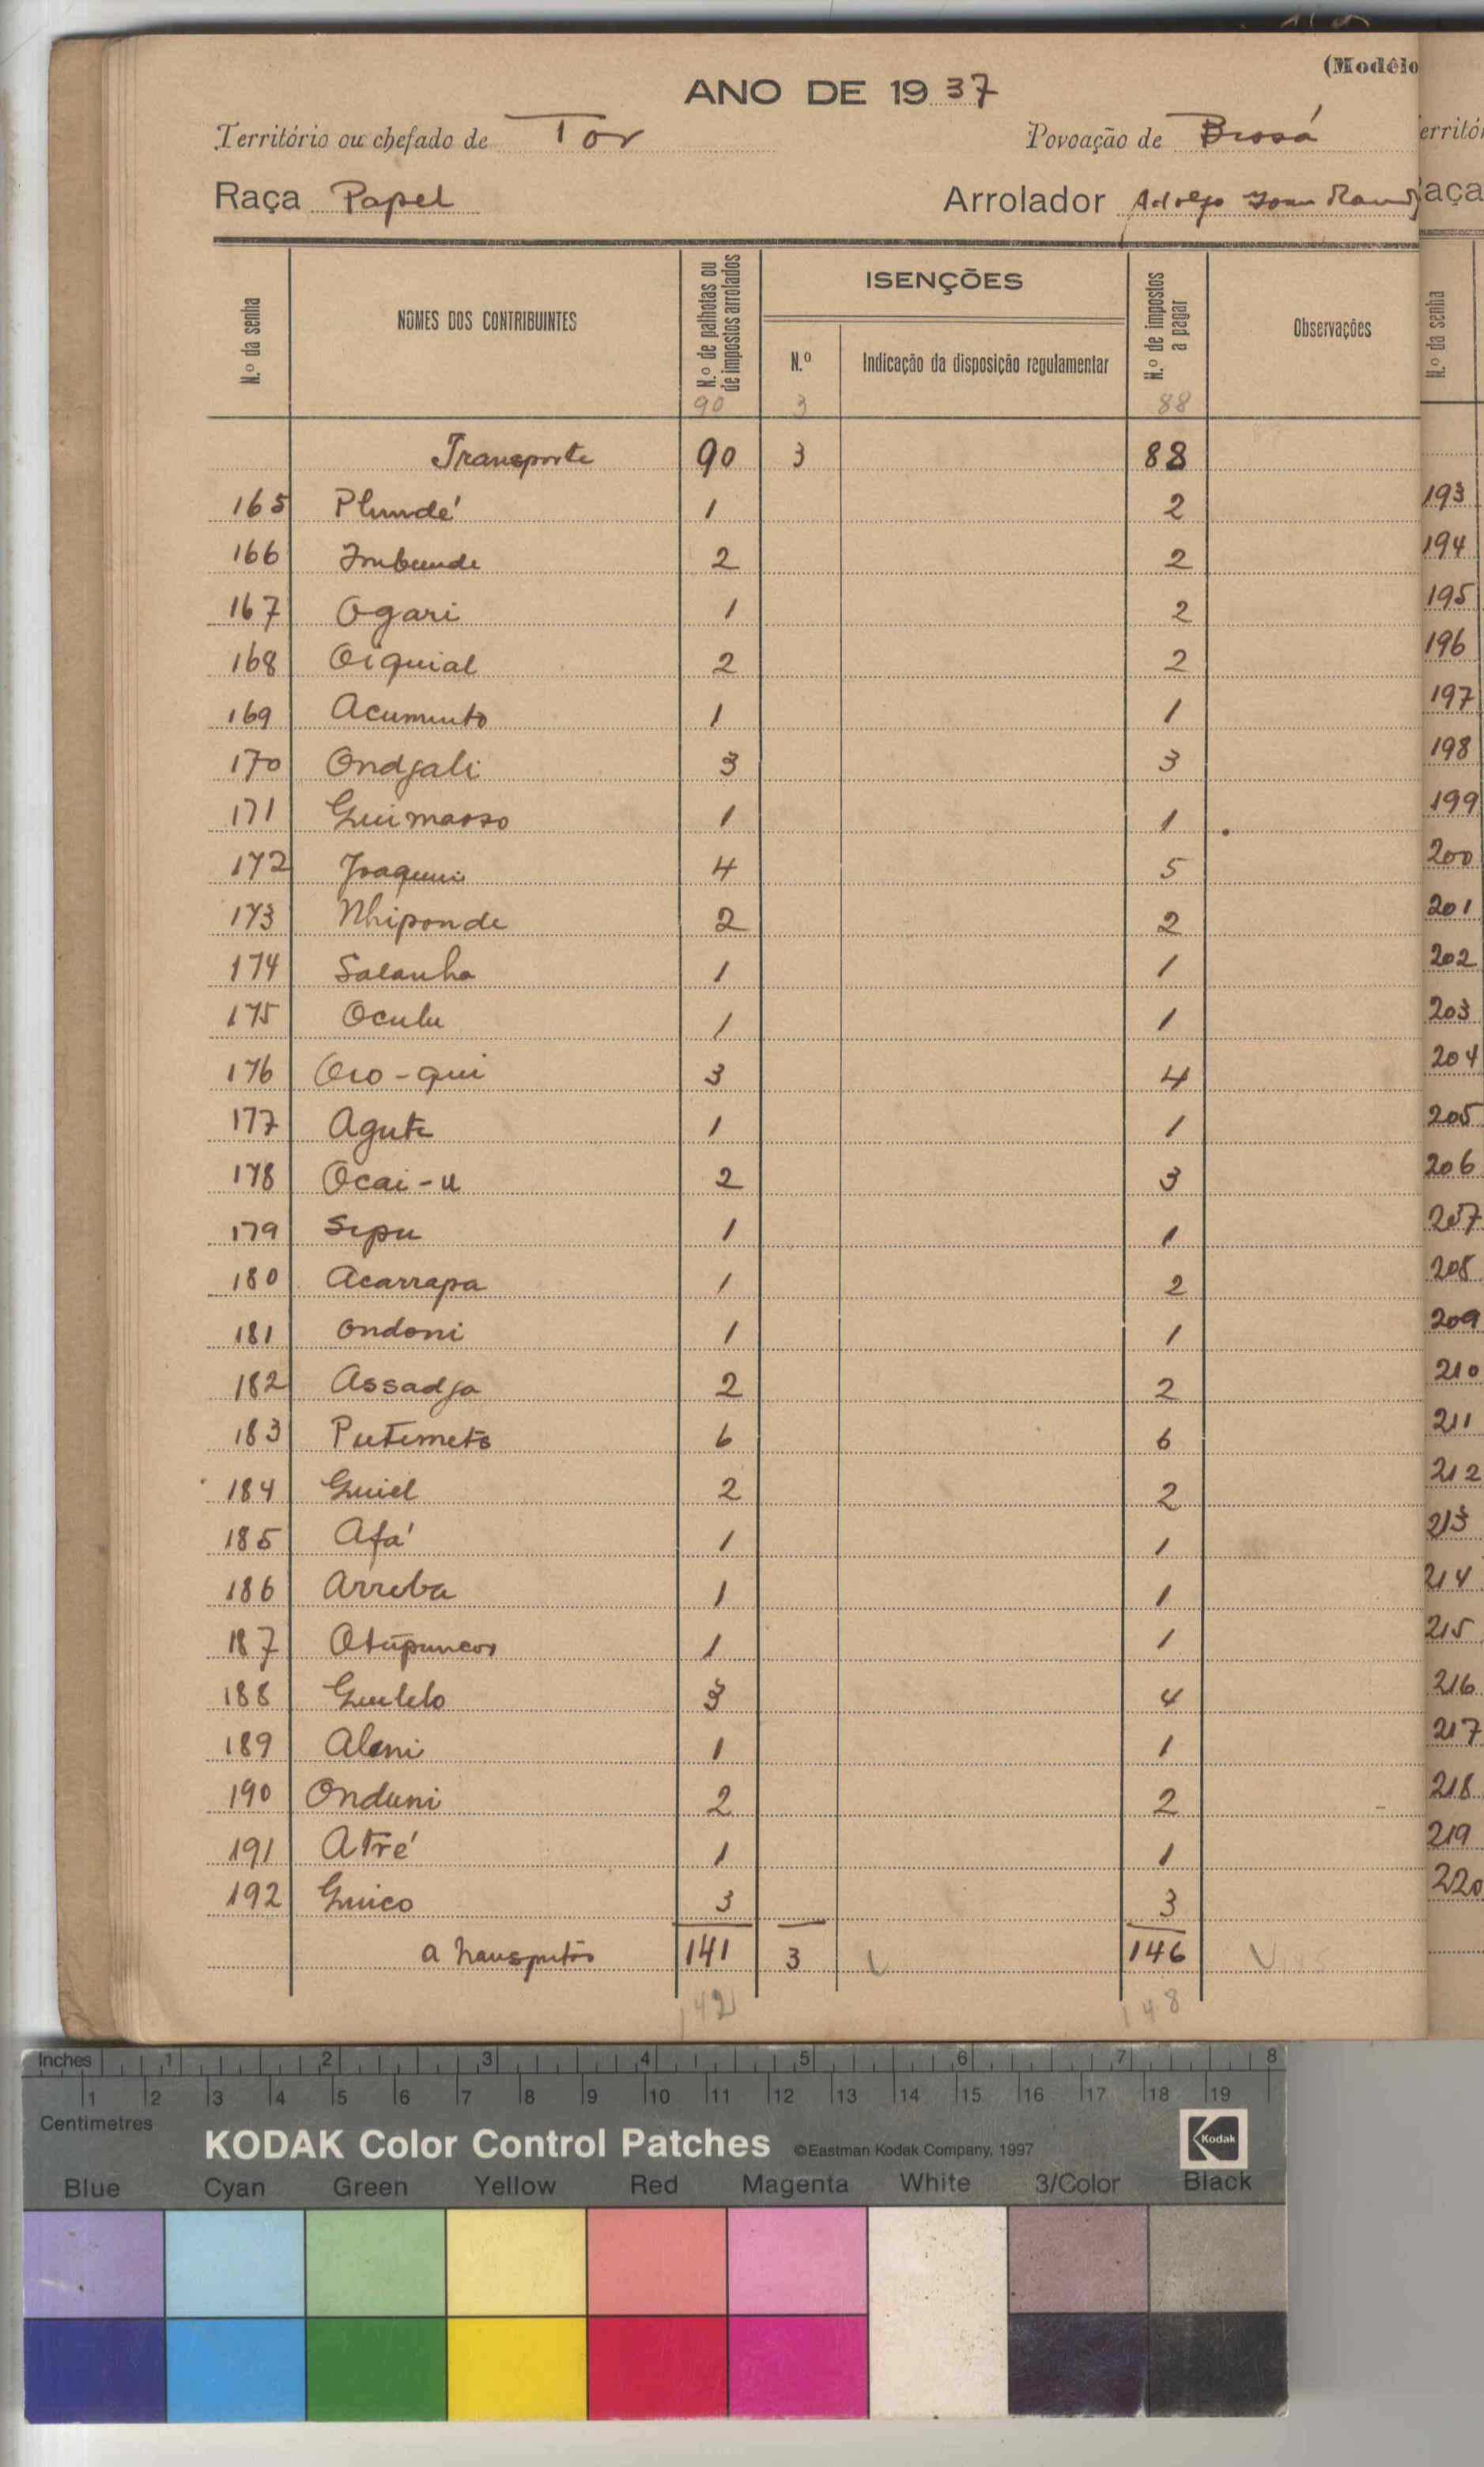 (Modêlo
ANO DE 1937
Território ou chefado de Tor Povoação de Brosá
Raça Papel Arrolador Adolfo
N.º da senha NOMES DOS CONTRIBUINTES N.º de palhotas ou de impostos arrolados ISENÇÕES N.º Indicação da disposição regulamentar N.º de impostos a pagar Observações
90 3 88
Transporte 90 3 88
165 Plundé 1 2
166 Imbunde 2 2
167 Ogari 1 2
168 Oiquial 2 2
169 Acuminto 1 1
170 Ondjali 3 3
171 Guimasso 1 1
172 Joaquim 4 5
173 Nhiponde 2 2
174 Salanha 1 1
175 Oculu 1 1
176 Oro-qui 3 4
177 Agute 1 1
178 Ocai-u 2 3
179 Sepu 1 1
180 Acarrapa 1 2
181 Ondoni 1 1
182 Assadja 2 2
183 Putimeto 6 6
184 Guiel 2 2
185 Afá 1 1
186 Arroba 1 1
187 1 1
188 Guilelo 3 4
189 Aleni 1 1
190 Onduni 2 2
191 Atré 1 1
192 Guico 3 3
A transportar 141 3 146
142 148
erritó
aça
N.º da senha
193
194
195
196
197
198
199
200
201
202
203
204
205
206
207
208
209
210
211
212
213
214
215
216
217
218
219
220
Inches 1 2 3 4 5 6 7 8
1 2 3 4 5 6 7 8 9 10 11 12 13 14 15 16 17 18 19
Centimetres
KODAK Color Control Patches ©Eastman Kodak Company, 1997 Kodak
Blue Cyan Green Yellow Red Magenta White 3/Color Black